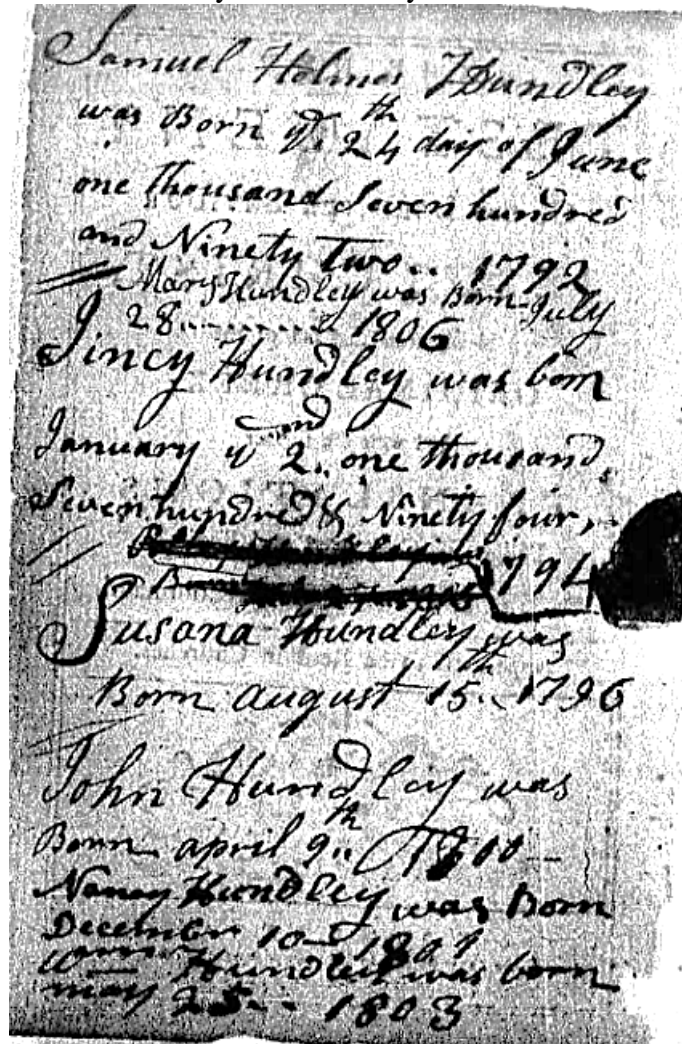 Samuel Holmes Hundley
was Born ye. 24th day of June
one thousand Seven hundred
and Ninety Two.. 1792
Mary Hundley was Born July
28 1806
Jincy Hundley was born
January ye 2nd.. one thousand,
Seven hundred & Ninety four,
1794
Susana Hundley was
Born august 15th.. 1796
John Hundley was
Born april 9th.. 1800
Nancy Hundley was Born
December 10
Hundley was born
may 25 1803